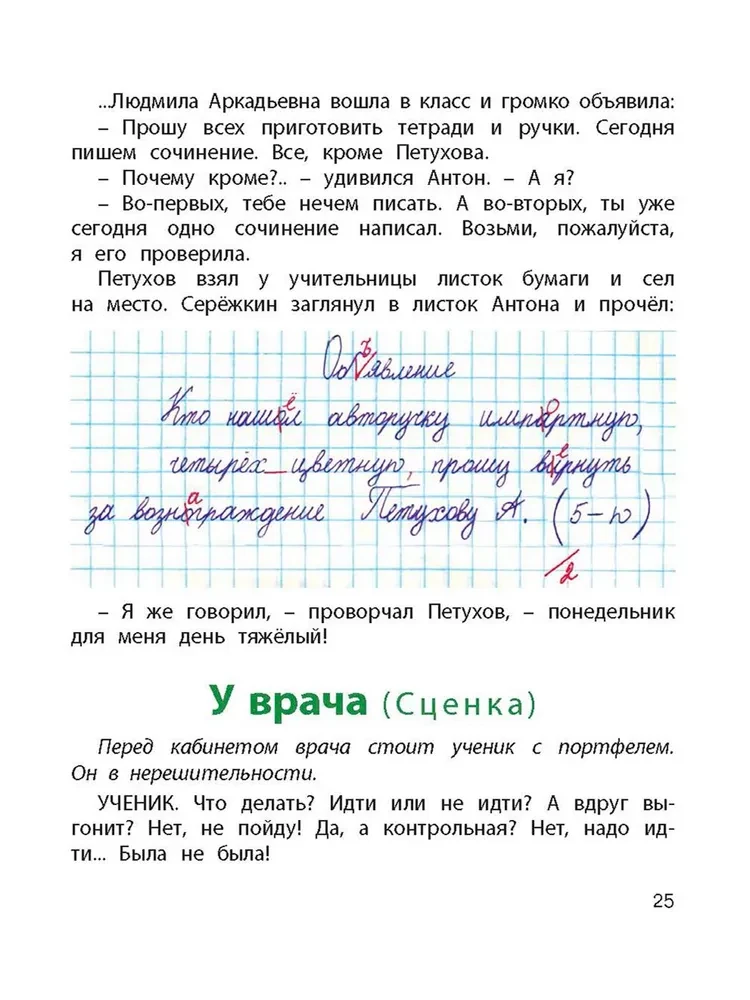 ...Людмила Аркадьевна вошла в класс и громко объявила:
– Прошу всех приготовить тетради и ручки. Сегодня
пишем сочинение. Все, кроме Петухова.
– Почему кроме?.. – удивился Антон. – А я?
– Во-первых, тебе нечем писать. А во-вторых, ты уже
сегодня одно сочинение написал. Возьми, пожалуйста,
я его проверила.
Петухов взял у учительницы листок бумаги и сел
на место. Серёжкин заглянул в листок Антона и прочёл:
ъ
Обявление
ё о
Кто нашол авторучку импартную,
е
четырёх цветную, прошу вирнуть
а
за вознограждение Петухову А. (5-ю)
/2
– Я же говорил, – проворчал Петухов, – понедельник
для меня день тяжёлый!
У врача (Сценка)
Перед кабинетом врача стоит ученик с портфелем.
Он в нерешительности.
УЧЕНИК. Что делать? Идти или не идти? А вдруг вы-
гонит? Нет, не пойду! Да, а контрольная? Нет, надо ид-
ти... Была не была!
25